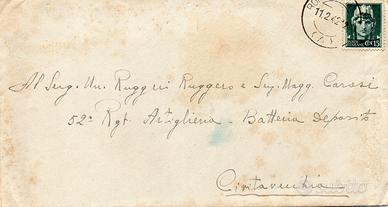 11.2.42
CENT. 15
Al Serg. Un. Ruggeri Ruggero e Serg. Magg. Carosi
52º Rgt. Artiglieria - Batteria Deposito
Civitavecchia
subito